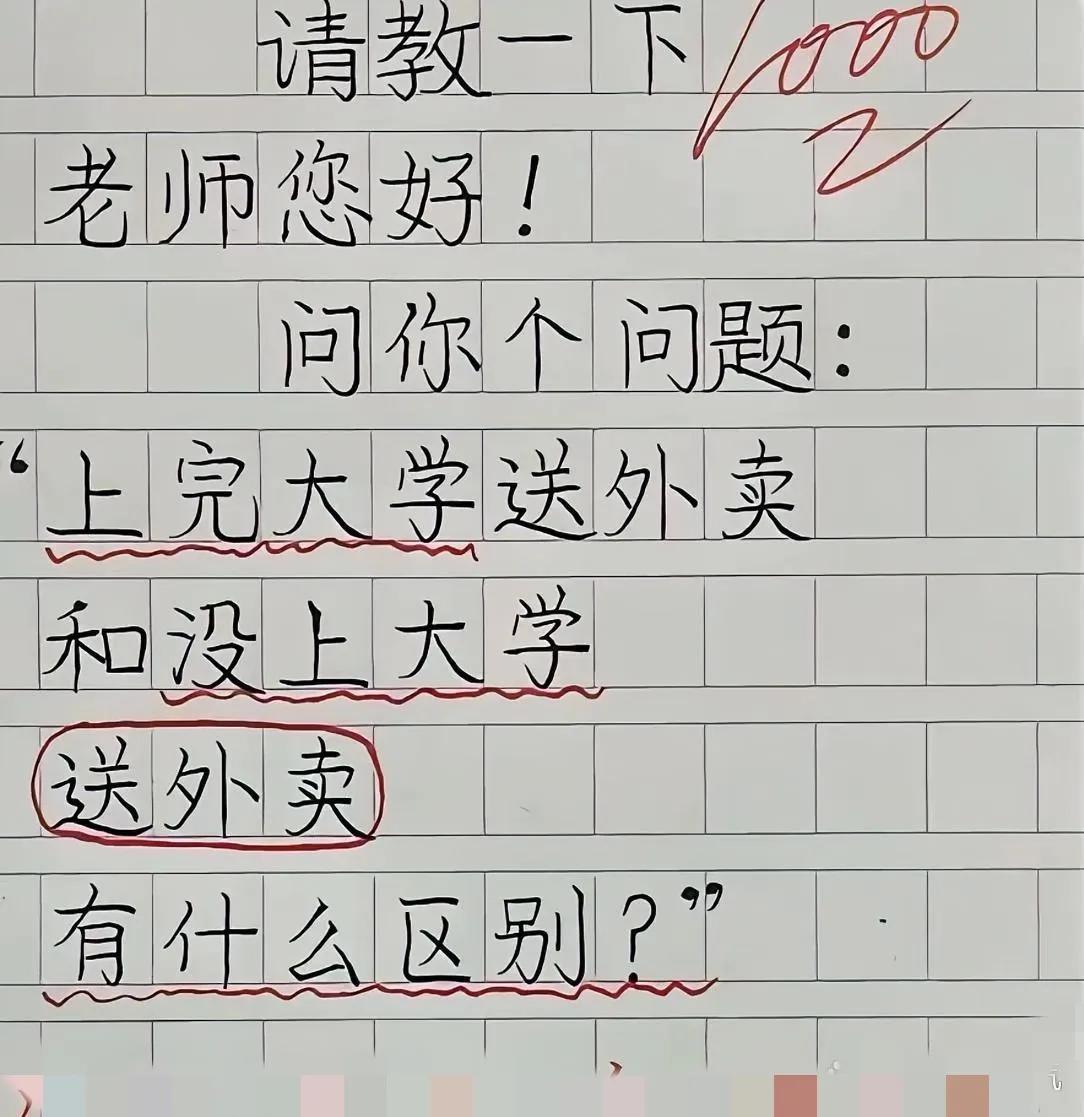 请教一下
老师您好！
问你个问题：
“上完大学送外卖
和没上大学
送外卖
有什么区别？”